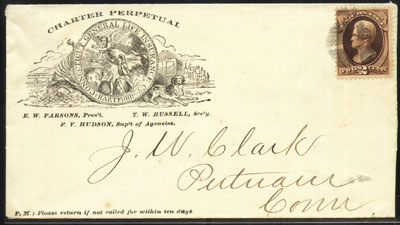 CHARTER PERPETUAL
CONNECTICUT GENERAL LIFE INSURANCE CO.
HARTFORD
E. W. PARSONS, Pres't. T. W. RUSSELL, Sec'y.
F. V. HUDSON, Sup't of Agencies.
J. W. Clark
Putnam
Conn
P. M.: Please return if not called for within ten days.
TWO CENTS
2